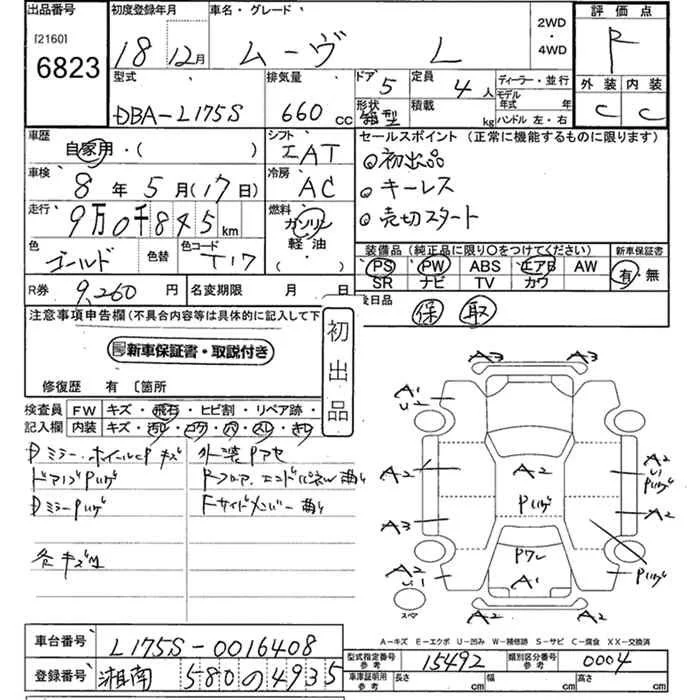 出品番号 [2160] 6823
初度登録年月 18 12月
車名・グレード ムーヴ L
2WD・4WD
評価点 R
外装 C 内装 C
型式 DBA-L175S
排気量 660cc
ドア 5 定員 4人
形状 箱型 積載 kg
ディーラー・並行
モデル年式 年
ハンドル 左・右
車歴 自家用・( )
シフト IAT
セールスポイント (正常に機能するものに限ります)
◎初出品
◎キーレス
◎売切スタート
車検 8年5月(17日)
冷房 AC
走行 9万0千845km
燃料 ガソリン 軽・油 ( )
色 ゴールド 色替 色コード T17
装備品 (純正品に限り〇をつけてください) 新車保証書
PS PW ABS エアB AW 有・無
SR ナビ TV カワ
R券 9,260円 名変期限 月 日
後日品 保 取
注意事項申告欄(不具合内容等は具体的に記入して下
新車保証書・取説付き
初出品
修復歴 有 〔箇所
検査員記入欄
FW キズ・飛石・ヒビ割・リペア跡・
内装 キズ・汚レ・コゲ・穴・スレ・キレ
Dミラー・ホイールCP キズ 外装Pアセ
ドアノブPハゲ
Dミラー Pハゲ Fサイドメンバー曲り
各キズM
A3 A3
A1 U2 A2 A3 A2 U1
A2 Pハゲ
Pワレ A1
A2 U1 Pハゲ A2 Pハゲ A2
A2 A2
スペア
A-キズ E-エクボ U-凹み W-補修跡 S-サビ C-腐食 XX-交換済
車台番号 L175S-0016408
登録番号 湘南 580 の 4935
型式指定番号 参考 15492 類別区分番号 参考 0004
車庫証明用 参考 長さ cm 幅 cm 高さ cm